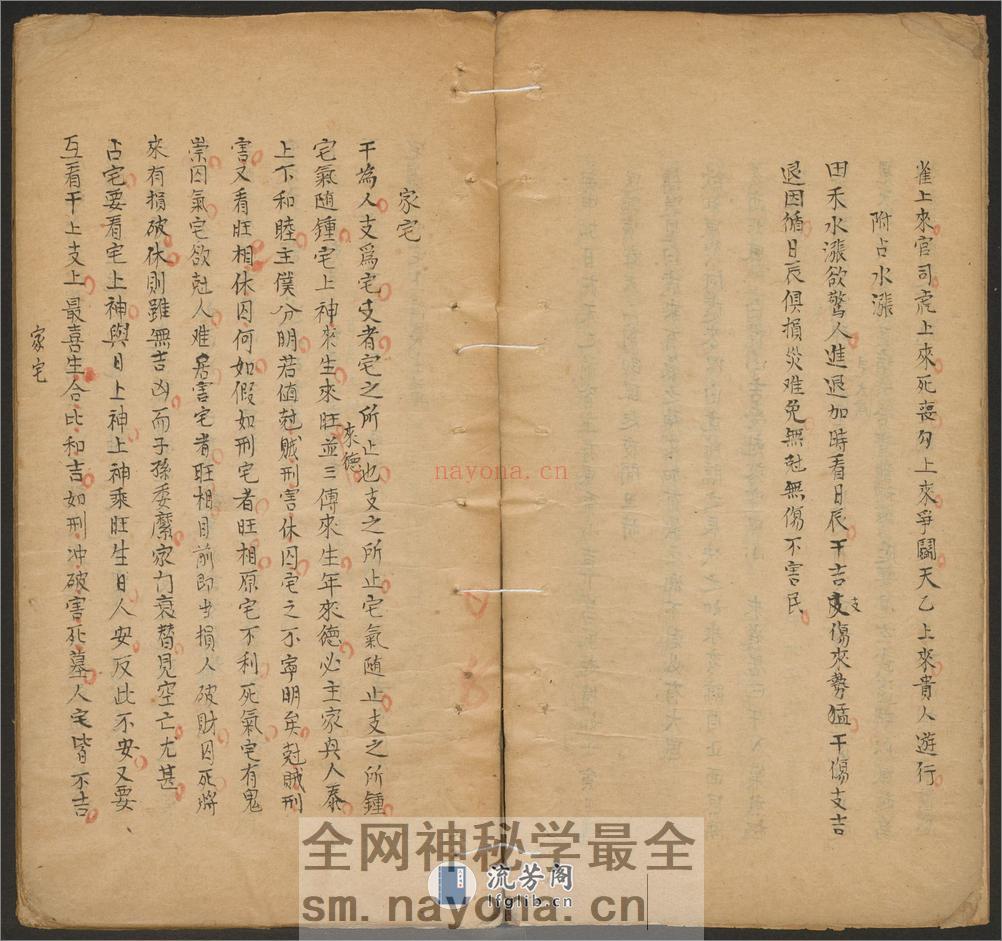 雀上來官司虎上來死喪勾上來爭鬪天乙上來貴人遊行
附占水漲
田禾水漲欲驚人進退加時看日辰干吉支傷來勢猛干傷支吉
退因循日辰俱損災难免無尅無傷不害民
家宅
干為人支爲宅支者宅之所止也支之所止宅氣随止支之所鍾
宅氣随鍾宅上神來生來旺並三傳來生年來德必主家興人泰
來德
上下和睦主僕分明若值尅賊刑害休囚宅之不寧明矣尅賊刑
害又看旺相休囚何如假如刑宅者旺相原宅不利死氣宅有鬼
祟囚氣宅欲尅人难居害宅者旺相目前即当損人破財囚死將
來有損破休則雖無吉凶而子孫委縻家门衰替見空亡尤甚
占宅要看宅上神與日上神上神乘旺生日人安反此不安又要
互看干上支上最喜生合比和吉如刑冲破害死墓人宅皆不吉
家宅
nayona.cn
全网神秘学最全
流芳阁
lfglib.cn
sm.nayona.cn